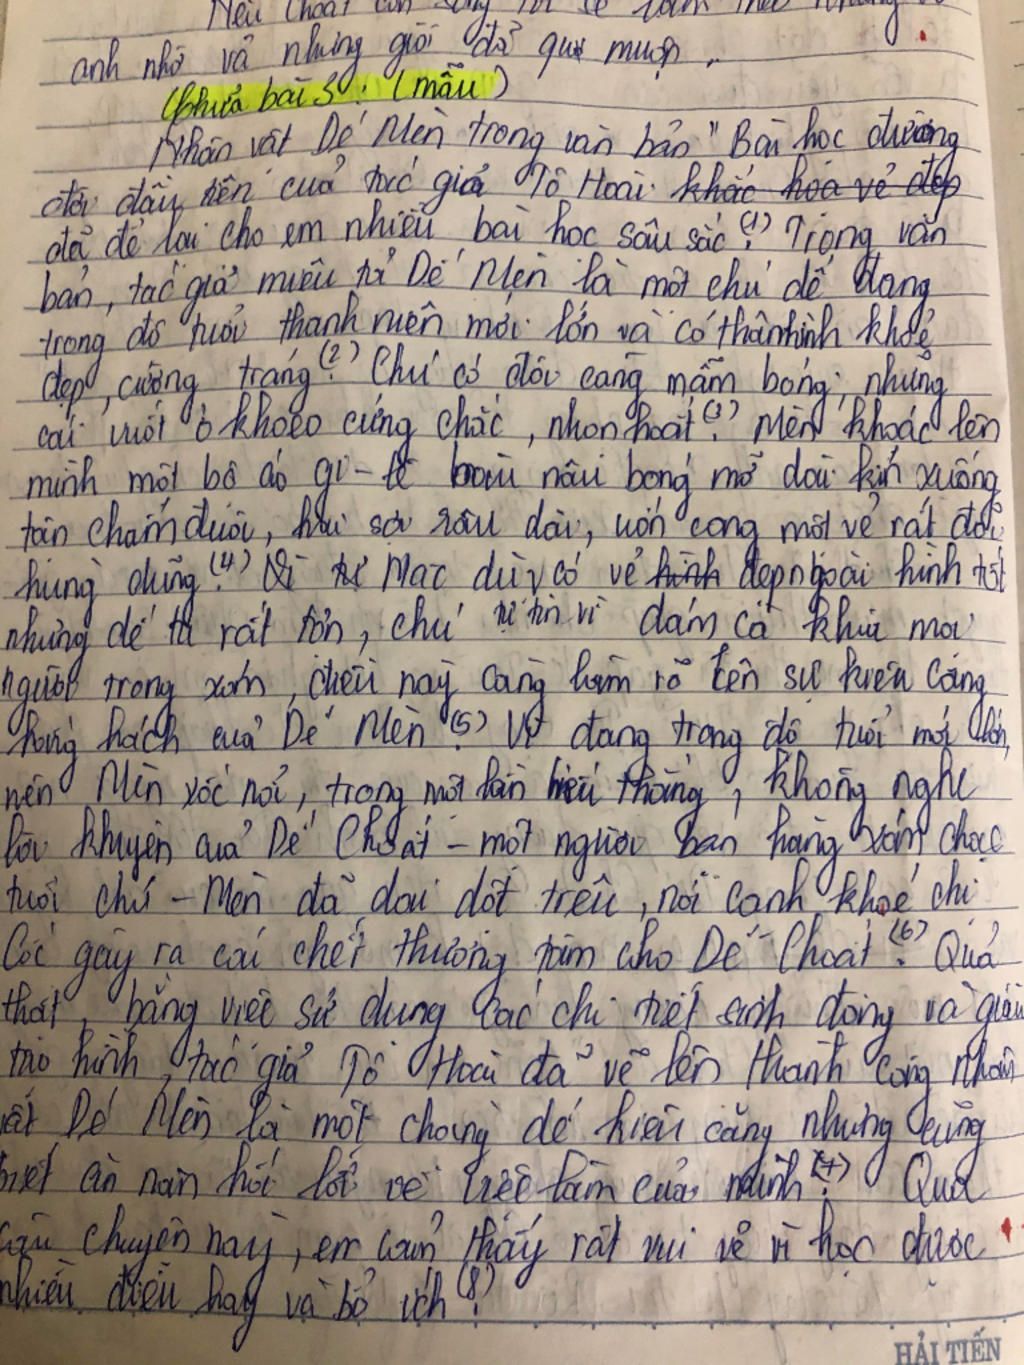 Nếu Choắt còn sống tôi sẽ
anh nhờ và những giời đã qua muộn.
(chữa bài 3: (mẫu)
Nhân vật Dế Mèn trong văn bản "Bài học đường
đời đầu tiên của tác giả Tô Hoài khắc họa vẻ đẹp
đã để lại cho em nhiều bài học sâu sắc (1). Trong văn
bản, tác giả miêu tả Dế Mèn là một chú dế đang
trong độ tuổi thanh niên mới lớn và có thân hình khoẻ
đẹp, cường tráng (2). Chú có đôi càng mẫm bóng, những
cái vuốt ở khoeo cứng chắc, nhọn hoắt (3). Mèn khoác lên
mình một bộ áo gi-lê màu nâu bóng mỡ dài kín xuống
tận chấm đuôi, hai sợi râu dài, uốn cong một vẻ rất đỗi
hùng dũng (4). Mặc dù có vẻ đẹp ngoài hình tốt
nhưng dế ta rất tợn, chú tự tin vì dám cà khịa mọi
người trong xóm, điều này càng làm rõ lên sự kiêu căng
hống hách của Dế Mèn (5). Vì đang trong độ tuổi mới lớn,
nên Mèn xốc nổi, trong một lần hiếu thắng, không nghe
lời khuyên của Dế Choắt – một người bạn hàng xóm chạc
tuổi chú – Mèn đã dại dột trêu, nói cạnh khoé chị
Cốc gây ra cái chết thương tâm cho Dế Choắt (6). Quả
thật, bằng việc sử dụng các chi tiết sinh động và giàu
tạo hình, tác giả Tô Hoài đã vẽ lên thành công nhân
vật Dế Mèn là một chàng dế kiêu căng nhưng cũng
biết ăn năn hối lỗi về việc làm của mình (7). Qua
câu chuyện này, em cảm thấy rất vui vẻ vì học được
nhiều điều hay và bổ ích (8).
HẢI TIẾN